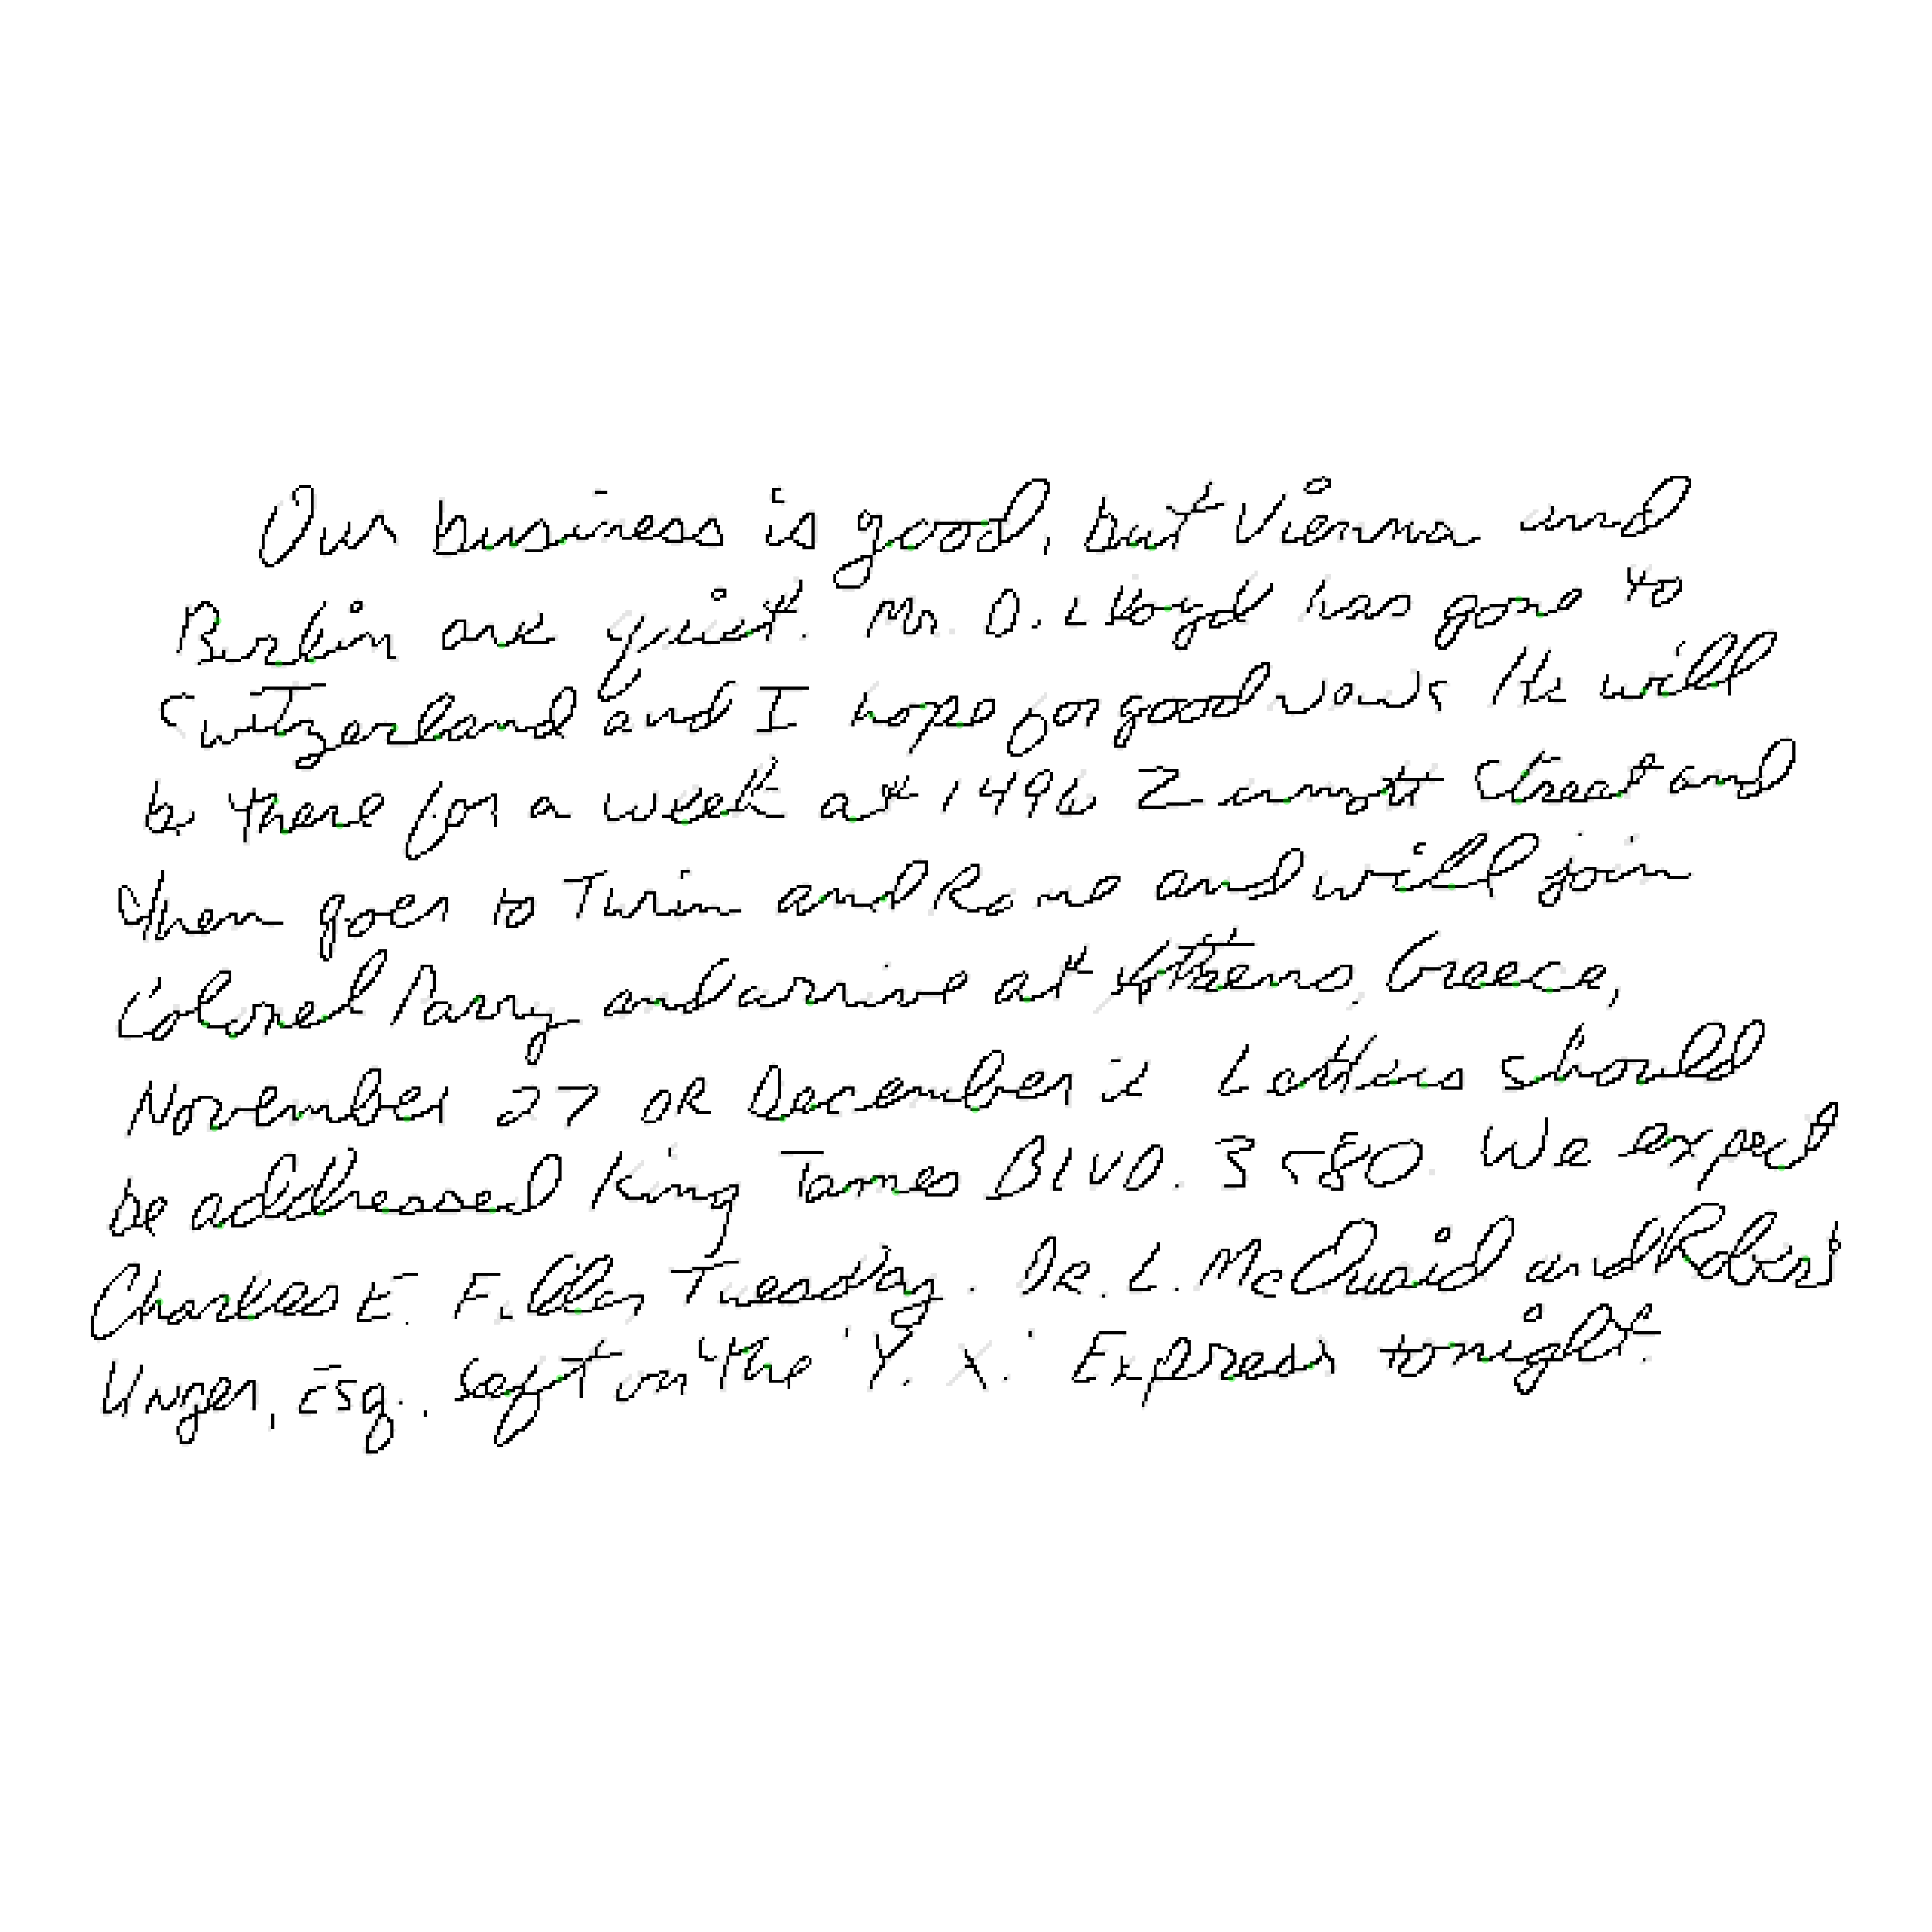 Our business is good, but Vienna and
Berlin are quiet. Mr. D. Lloyd has gone to
Switzerland and I hope for good news He will
be there for a week at 1496 Zermott Street and
then goes to Turin and Rome and will join
Colonel Parry and arrive at Athens, Greece,
November 27 or December 2 Letters should
be addressed King James Blvd. 3580. We expect
Charles E. Fuller Tuesday. Dr. L. McQuaid and Robert
Unger, Esq., left on the 'Y. X.' Express tonight.